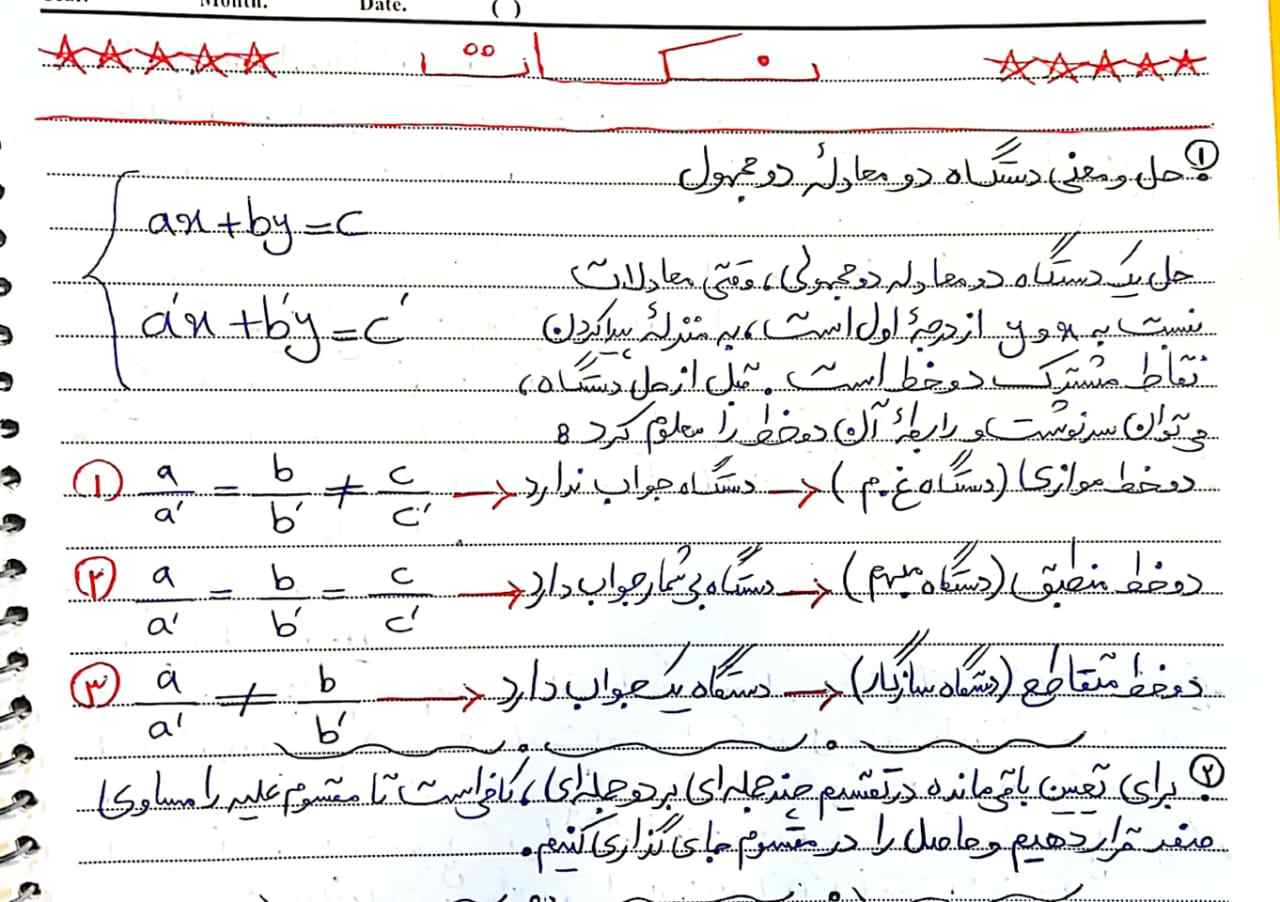 Year. Month. Date. ( )
نکات
۱. حل و معنی دستگاه دو معادلهٔ دو مجهول
ax + by = c
a'x + b'y = c'
حل یک دستگاه دو معادله دو مجهولی، وقتی معادلات
نسبت به x و y از درجهٔ اول است، به منزلهٔ پیدا کردن
نقاط مشترک دو خط است. قبل از حل دستگاه،
می‌توان سرنوشت و رابطهٔ آن دو خط را معلوم کرد :
① a/a' = b/b' ≠ c/c' → دستگاه جواب ندارد → دو خط موازی (دستگاه غ.م)
② a/a' = b/b' = c/c' → دستگاه بی‌شمار جواب دارد → دو خط منطبق (دستگاه مبهم)
③ a/a' ≠ b/b' → دستگاه یک جواب دارد → دو خط متقاطع (دستگاه سازگار)
۲. برای تعیین باقی‌مانده در تقسیم چندجمله‌ای بر دوجمله‌ای، کافی‌است تا مقسوم علیه را مساوی
صفر قرار دهیم و حاصل را در مقسوم جای گذاری کنیم.